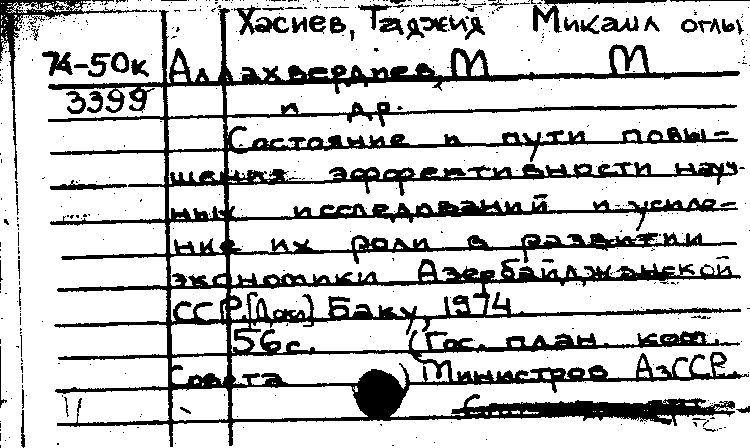 Хасиев, Таджид Микаил оглы
74-50к Аллахвердиев, М. М.
3399 и др.
Состояние и пути повы-
шения эффективности науч-
ных исследований и усиле-
ние их роли в развитии
экономики Азербайджанской
ССР. [Докл.] Баку, 1974.
56 с. (Гос. план. ком.
Совета Министров АзССР.